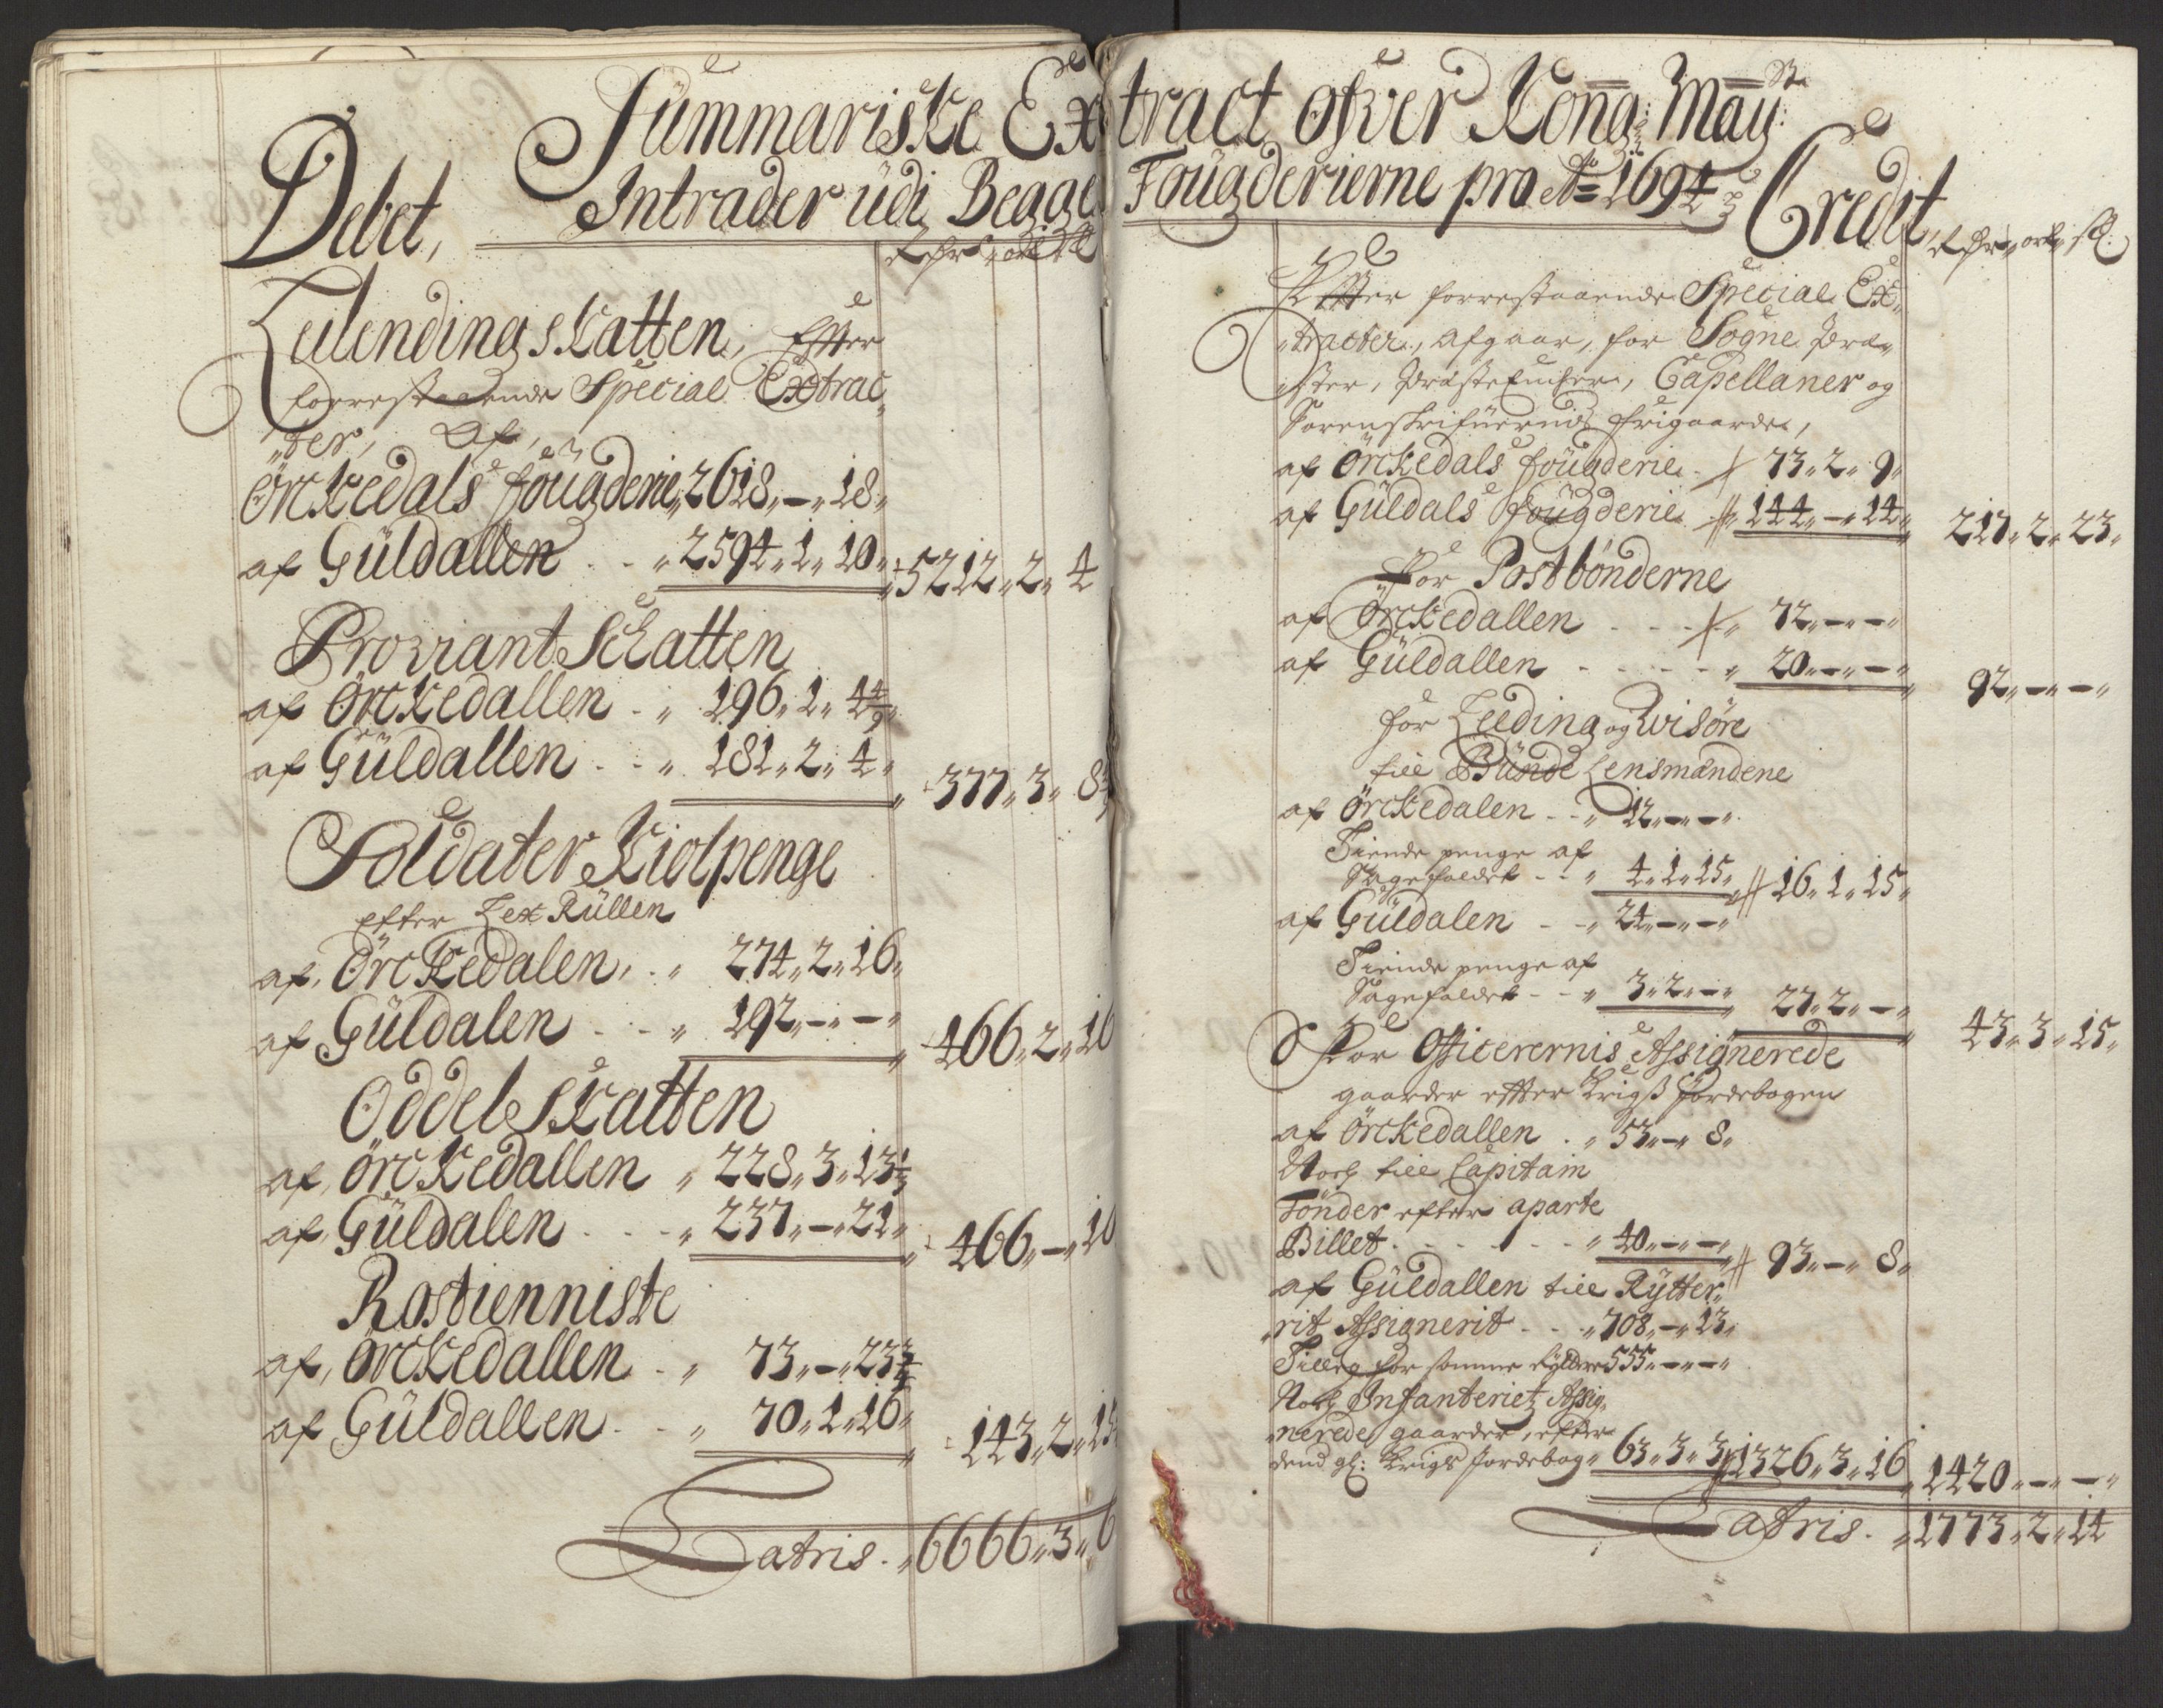 Summariske Extract ofver Kong: May:st
Debet, Intrader udi Begge Fougderierne pro Ao 1694 Credit
Leilendings Skatten, Efter
forrestaaende Special Extrac
ter, Af,
Örckedals fougderie 2618 „ – „ 18 „
af Güldallen . . „ 2594 „ 1 „ 10 „ 5212 „ 2 „ 4
Proviant Skatten
af Örckedallen . „ 196 „ 1 „ 4 4/9
af Güldallen . . „ 181 „ 2 „ 4 „ 377 „ 3 „ 8
Soldater Kiolpenge
efter Lex Rüllen
af, Örckedalen, . „ 274 „ 2 „ 16 „
af Güldalen . . „ 192 „ – „ – „ 466 „ 2 „ 16
Oddels Skatten
af, Örckedallen „ 228 „ 3 „ 13 1/3
af, Güldalen . . „ 237 „ – „ 21 „ 466 „ – „ 10
Rostienniste
af, Örckedallen . „ 73 „ – „ 23
af Güldallen . . „ 70 „ 1 „ 16 „ 143 „ 2 „ 15
Latris . „ 6666 „ 3 „ 6
Efter forrestaaende Special Ex
tracter, afgaar, for Sogne Præ
ster, Præsteencher, Capellaner og
Sorenskrifuernis frigaarde,
af Örckedals fougderie . 73 „ 2 „ 9 „
af Güldals fougderie „ 144 „ – „ 14 „ 217 „ 2 „ 23 „
For Postbönderne
af Örckedallen . . . „ 72 „ – „ – „
af Güldallen . . . . „ 20 „ – „ – „ 92 „ – „ – „
for Leeding og Wisöre
till Bünde Lensmændene
af Örckedalen . . „ 12 „ – „ – „
Tiende penge af
Sagefaldet . . „ 4 „ 1 „ 15 „ 16 „ 1 „ 15 „
af Güldalen . . „ 24 „ – „ – „
Tiende penge af
Sagefaldet . . „ 3 „ 2 „ – „ 27 „ 2 „ – „ 43 „ 3 „ 15 „
For Officerernis Assignerede
gaarder efter Krigs Jordebogen
af Örckedallen . „ 53 „ – „ 8 „
Noch till Capitain
Tönder efter aparte
Billet . . . . . „ 40 „ – „ – „ 93 „ – „ 8 „
af Güldallen till Rytter
rit Assignerit . . „ 708 „ – „ 13 „
Tilleg for samme 555 „ – „ – „
Noch Infanteriet Assig
nerede gaarder, efter
dend gl: Krigs Jordebog „ 63 „ 3 „ 3 „ 1326 „ 3 „ 16 „ 1420 „ – „ – „
Latris . „ 1773 „ 2 „ 14